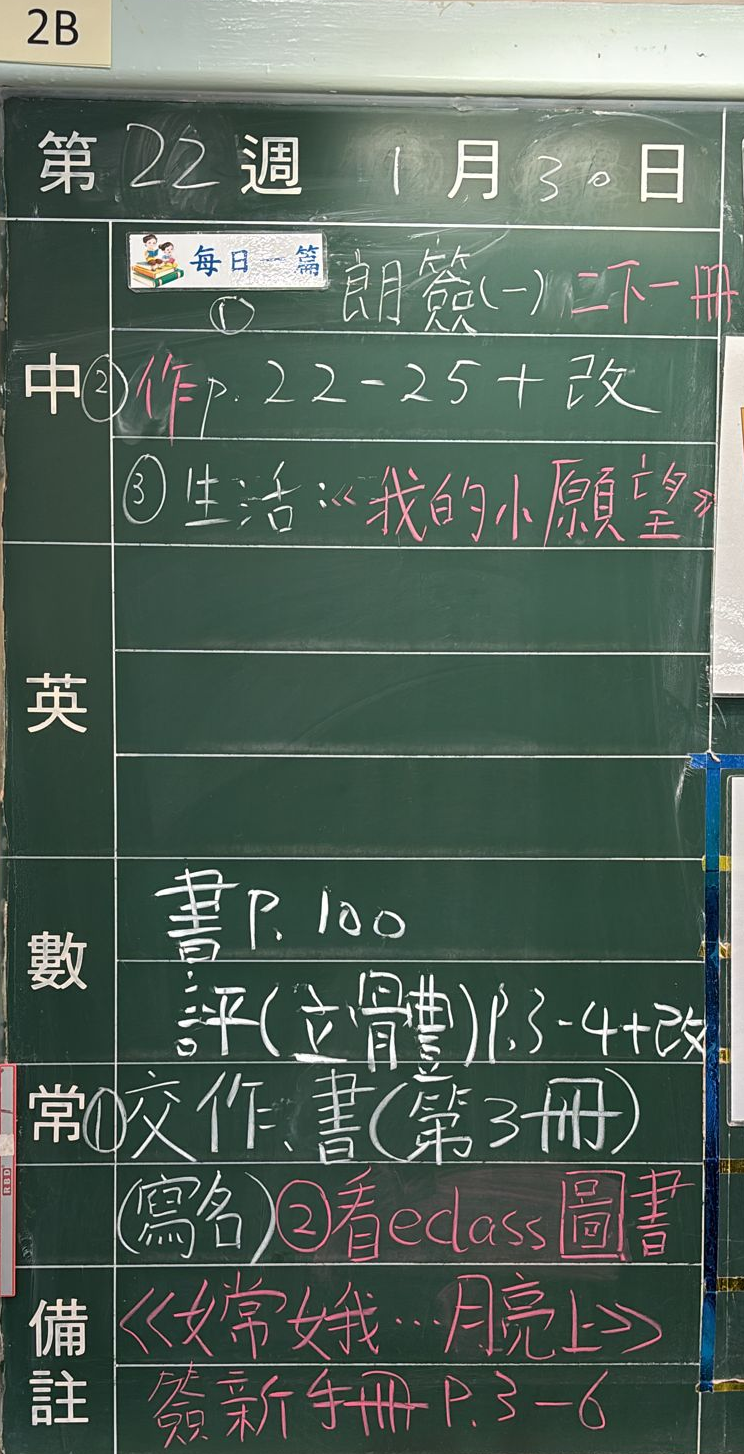 2B
第22週 1月30日
中
每日一篇
① 朗簽(一) 二下一冊
②作p.22-25+改
③生活:《我的小願望》
英
數
書P.100
評(立體)P.3-4+改
常
①交作、書(第3冊)
(寫名)②看eclass圖書
備註
《嫦娥…月亮上》
簽新手冊P.3-6
RBD